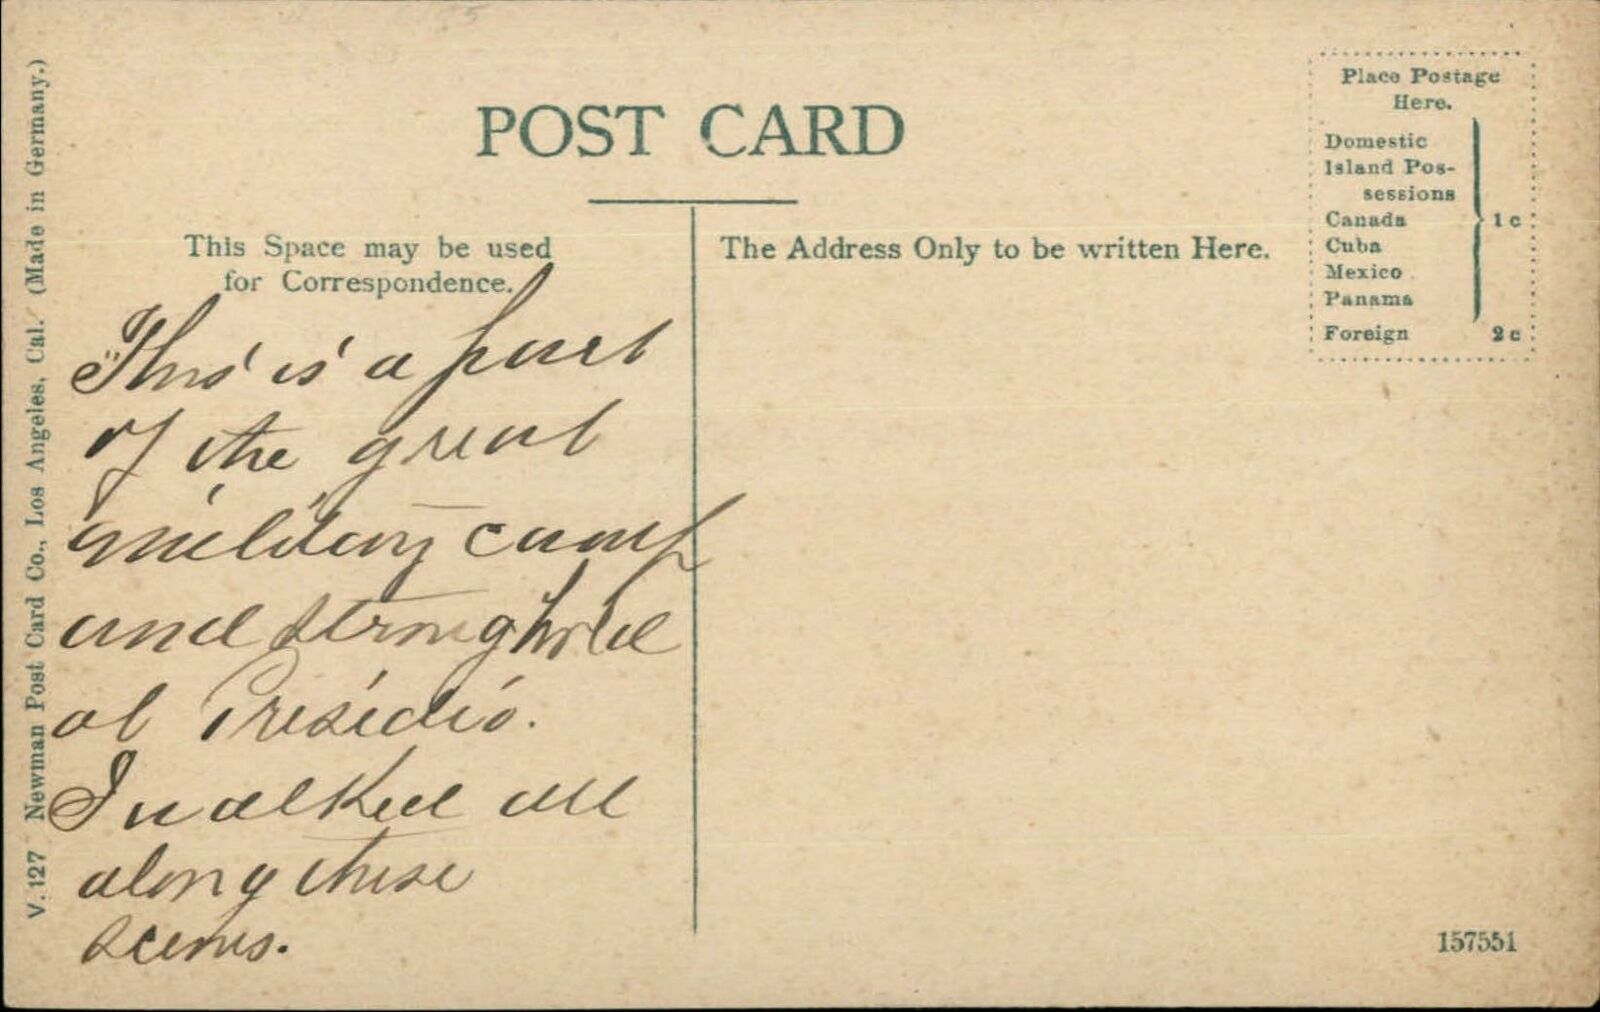 POST CARD
This Space may be used
for Correspondence.
This is a part
of the great
military camp
and stronghold
at Presidio.
I walked all
along these
scenes.
The Address Only to be written Here.
Place Postage
Here.
Domestic
Island Pos-
sessions
Canada 1c
Cuba
Mexico
Panama
Foreign 2c
157551
V. 127 Newman Post Card Co., Los Angeles, Cal. (Made in Germany.)